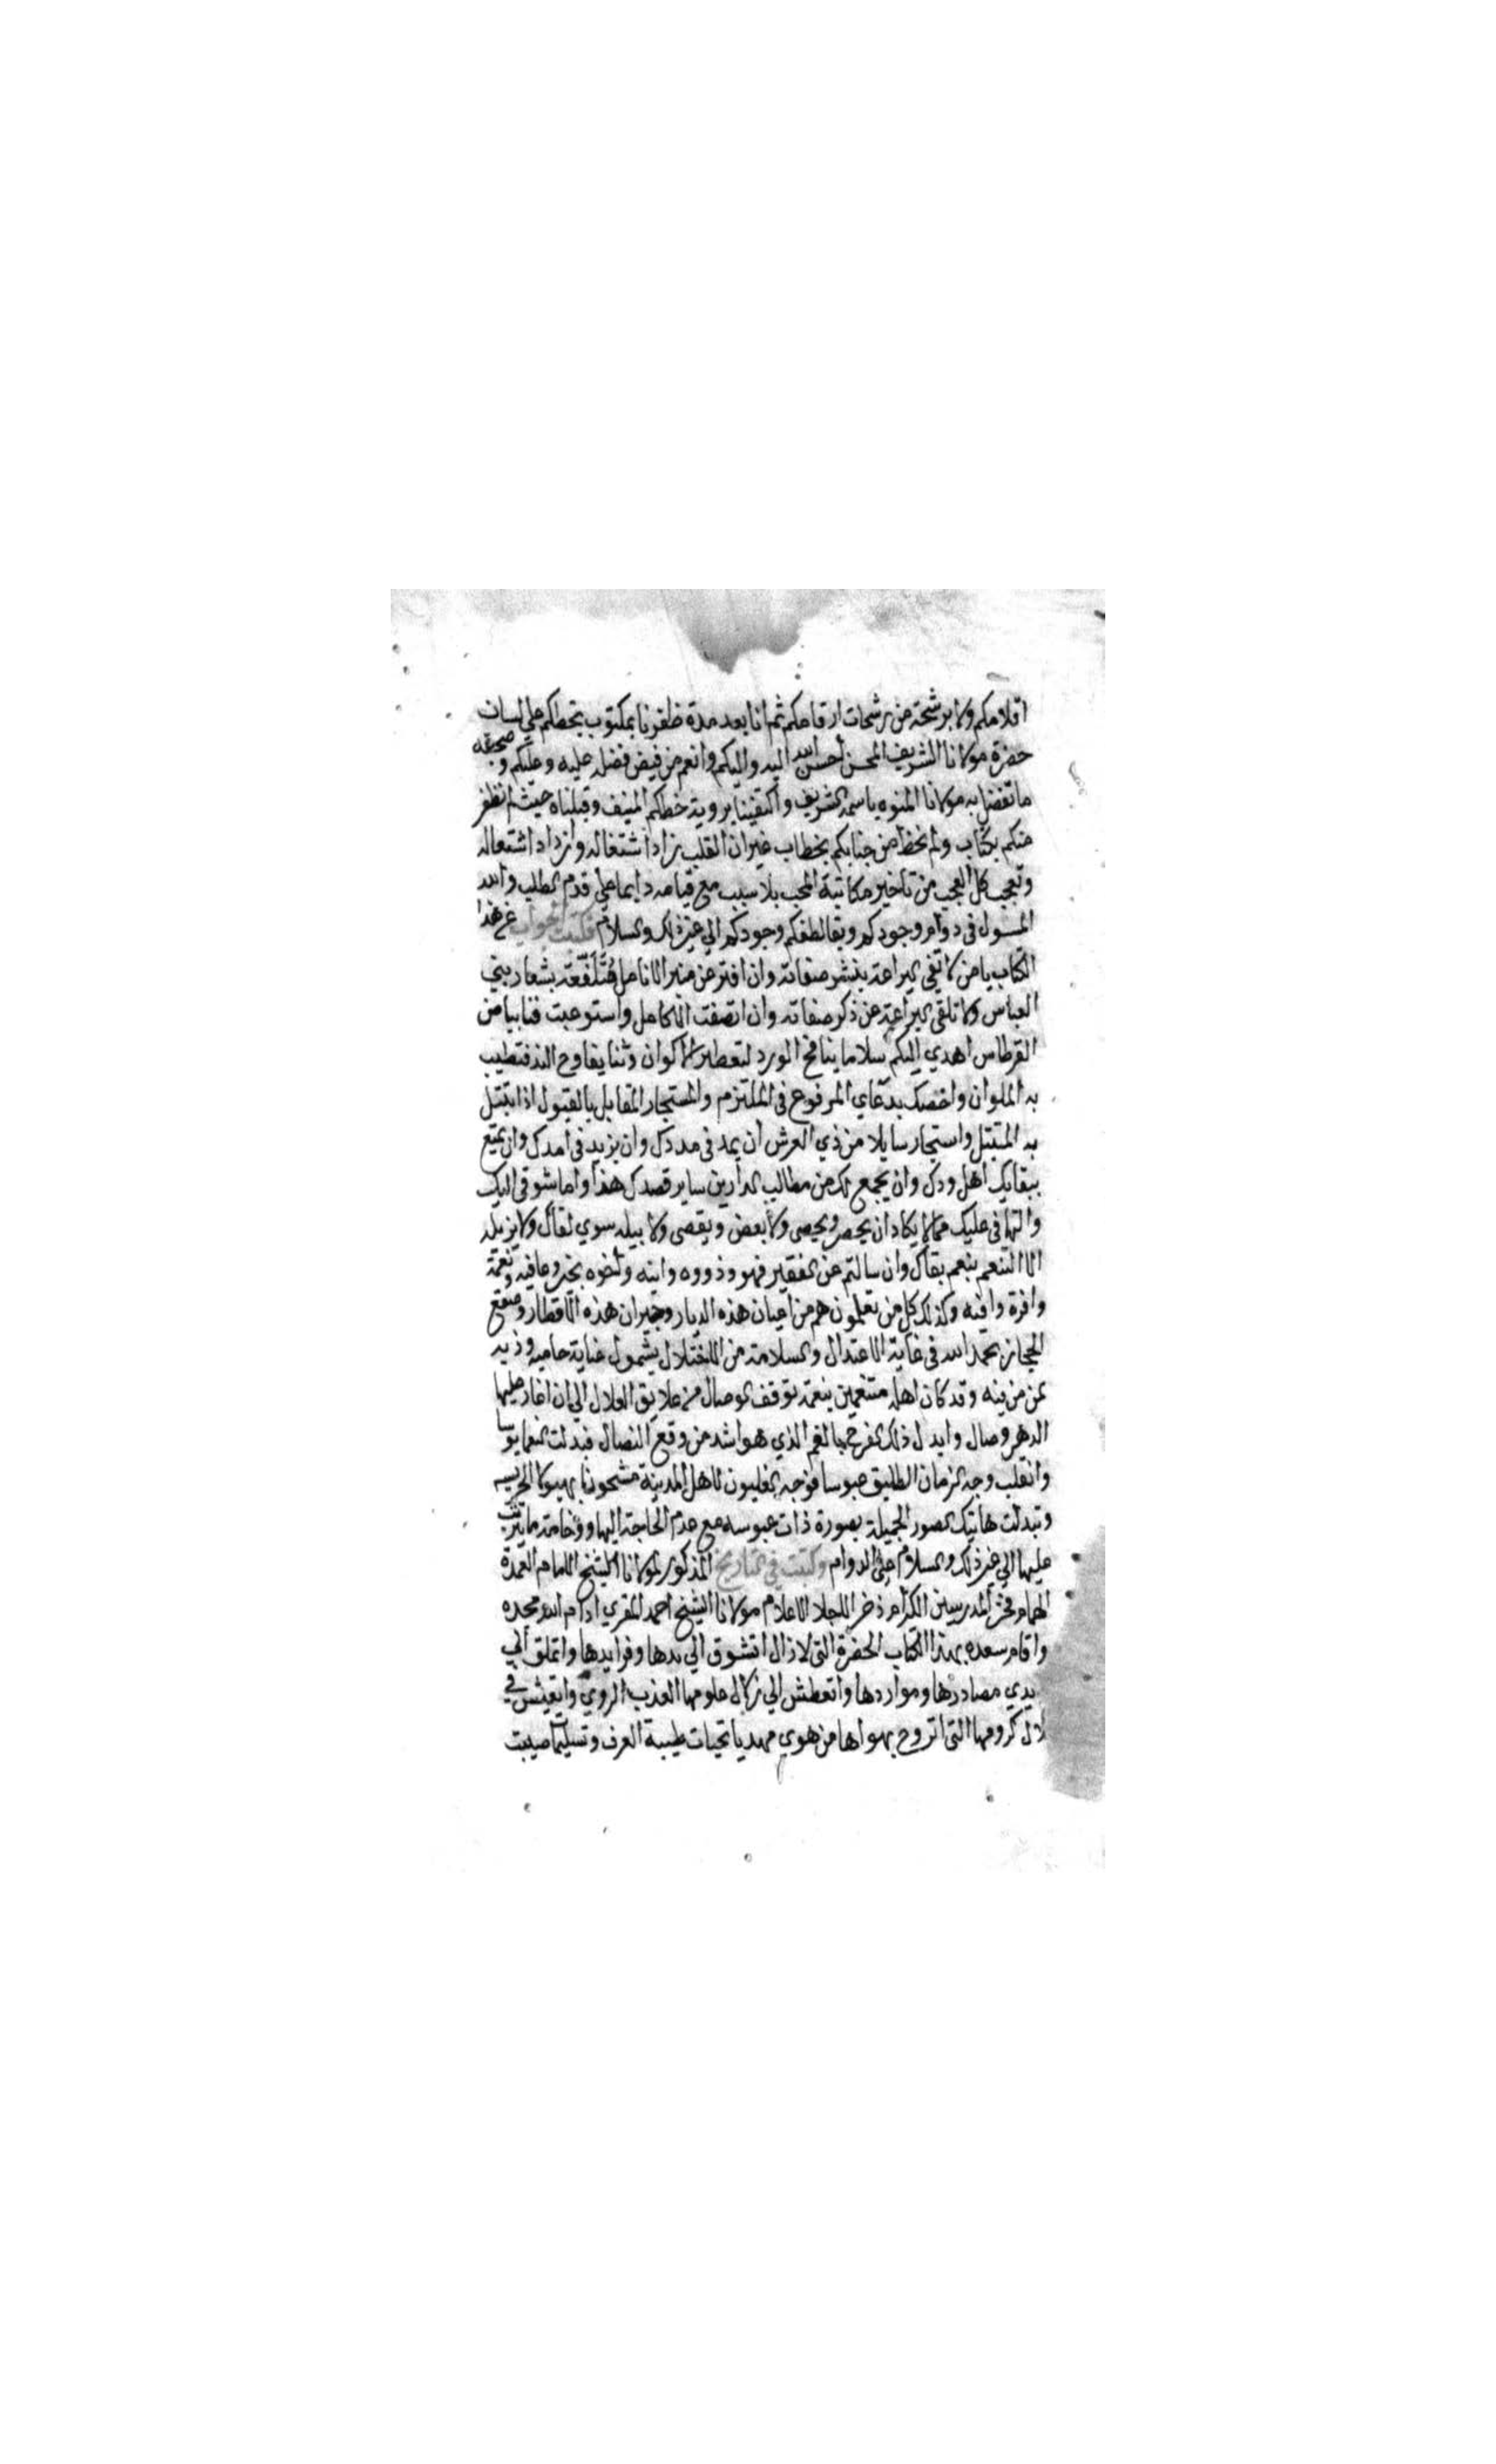 اقلامكم ولا برشحة من رشحات ارقامكم ثم انا بعد مدة ظفرنا بمكتوب بخطكم علي لسان
حضرة مولانا الشريف المحسن أحسن الله اليه واليكم وانعم من فيض فضله عليه وعليكم و صحبته
ما تفضل به مولانا المنوه باسمه الشريف واكتفينا بروية خطكم المنيف وقبلناه حيث لم نظفر
منكم بكتاب ولم نحظ من جنابكم بخطاب غيران القلب زاد اشتغاله وازداد اشتعاله
وتعجب كل العجب من تاخير مكاتبة المحب بلا سبب مع قيامه دايما علي قدم الطلب والله
المسول في دوام وجودكم وبقا لطفكم وجودكم الي غير ذلك والسلام فكتبت الجواب عن هذا
الكتاب يا من لا تفي البراعة بنشر صفاته وان افتر عن منبر الانامل متلفعة بشعار بني
العباس ولا تلقي اليراعة عن ذكر صفاته وان اتصفت الكامل واستوعبت فنا بيا من
القرطاس اهدي اليكم سلاما ينافح الورد لتعطير الاكوان وثنا يفاوح الند فتطيب
به الملوان واخصك بدعاي المرفوع في الملتزم والمستجار المقابل بالقبول اذا ابتتل
به المتبتل واستجار سايلا من ذي العرش أن يمد في مددك وان يزيد في امدك وان يمتع
ببقايك اهل ودك وان يجمع لك من مطالب الدارين ساير قصدك هذا واما شوقي اليك
والتهافي عليك فما لا يكاد ان يحصر ويحصى ولا بعض ويقصى ولا يبيله سوي لقاك ولا يزيله
الا التنعم بنعم بقاك وان سالتم عن الفقير فهو وذووه وابنه واخوه بخير وعافيه ونعمة
وافرة وافيه وكذلك كل من تعلمون هم من اعيان هذه الديار وجيران هذه الاقطار وصقع
الحجاز بحمد الله في غاية الاعتدال والسلامة من الاختلال بشمول عناية حاميه وذيد
عن من فيه وقد كان اهله متنعمين بنعمة توقف الوصال من علايق العلال الي ان اغار عليها
الدهر وصال وابدل ذلك الفرح بالغم الذي هو اشد من وقع النصال فبدلت النعما بوسا
وانقلب وجه الزمان الطليق عبوسا فوجه الغليون لاهل المدينة مشحونا بهيولا الحريسه
وتبدلت هاتيك الصور الجميلة بصورة ذات عبوسه مع عدم الحاجة اليها ووخامة ما يترتب
عليها الي غير ذلك والسلام علي الدوام وكتبت في التاريخ المذكور لمولانا الشيخ الامام العمدة
الهمام فخر المدرسين الكرام ذخر الاجلا الاعلام مولانا الشيخ احمد المقري ادام الله مجده
واقام سعده بهذا الكتاب الحضرة التي لا زال اتشوق الي بدها وفرايدها واتملق الي
يدي مصادرها ومواردها واتعطش الي زلال علومها العذب الروي واتعيش في
لال كرومها التي اتروح بهواها من هوي مهديا تحيات طيبة العرف وتسليمات صيبت